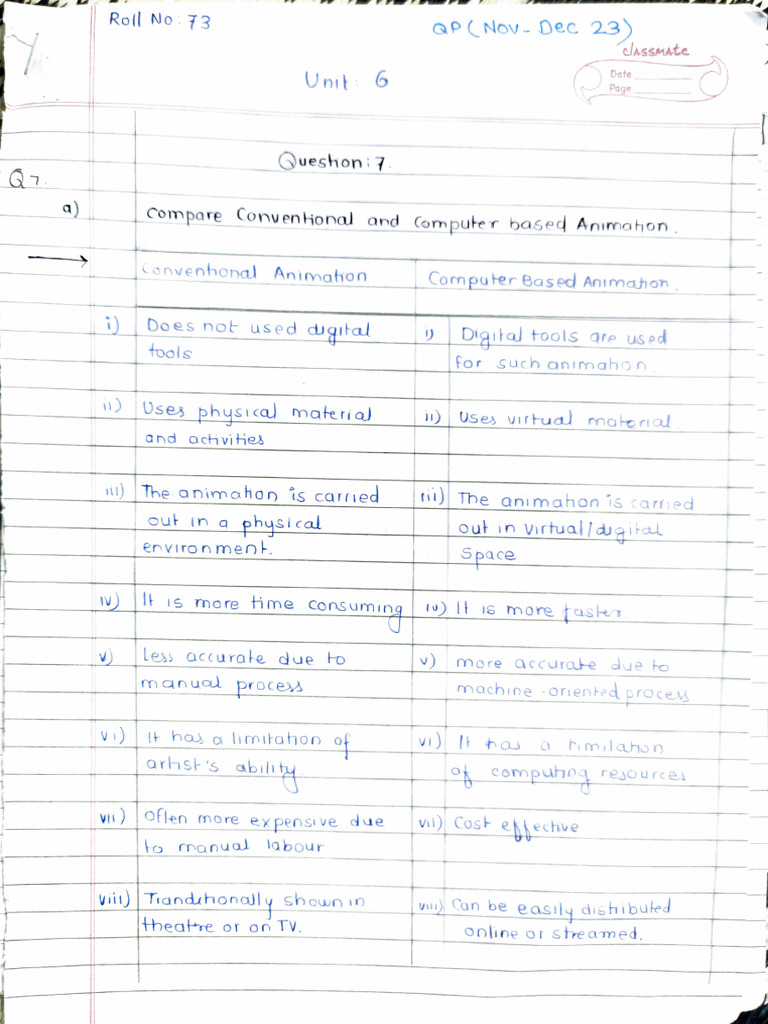 Roll No: 73
QP (Nov-Dec 23)
classmate
Date
Page
Unit: 6
Question: 7.
Q7.
a) Compare Conventional and Computer based Animation.
Conventional Animation
Computer Based Animation.
i) Does not used digital
tools
i) Digital tools are used
for such animation.
ii) Uses physical material
and activities
ii) Uses virtual material
iii) The animation is carried
out in a physical
environment.
iii) The animation is carried
out in virtual/digital
Space
iv) It is more time consuming
iv) It is more faster.
v) Less accurate due to
manual process
v) more accurate due to
machine-oriented process
vi) It has a limitation of
artist's ability
vi) It has a limitation
of computing resources
vii) Often more expensive due
to manual labour
vii) Cost effective
viii) Tranditionally shown in
theatre or on TV.
viii) Can be easily distributed
online or streamed.